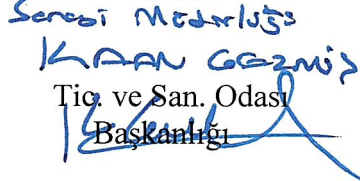 Senesi Müdürlüğü
KAAN GEZMİŞ
Tic. ve San. Odası
Başkanlığı